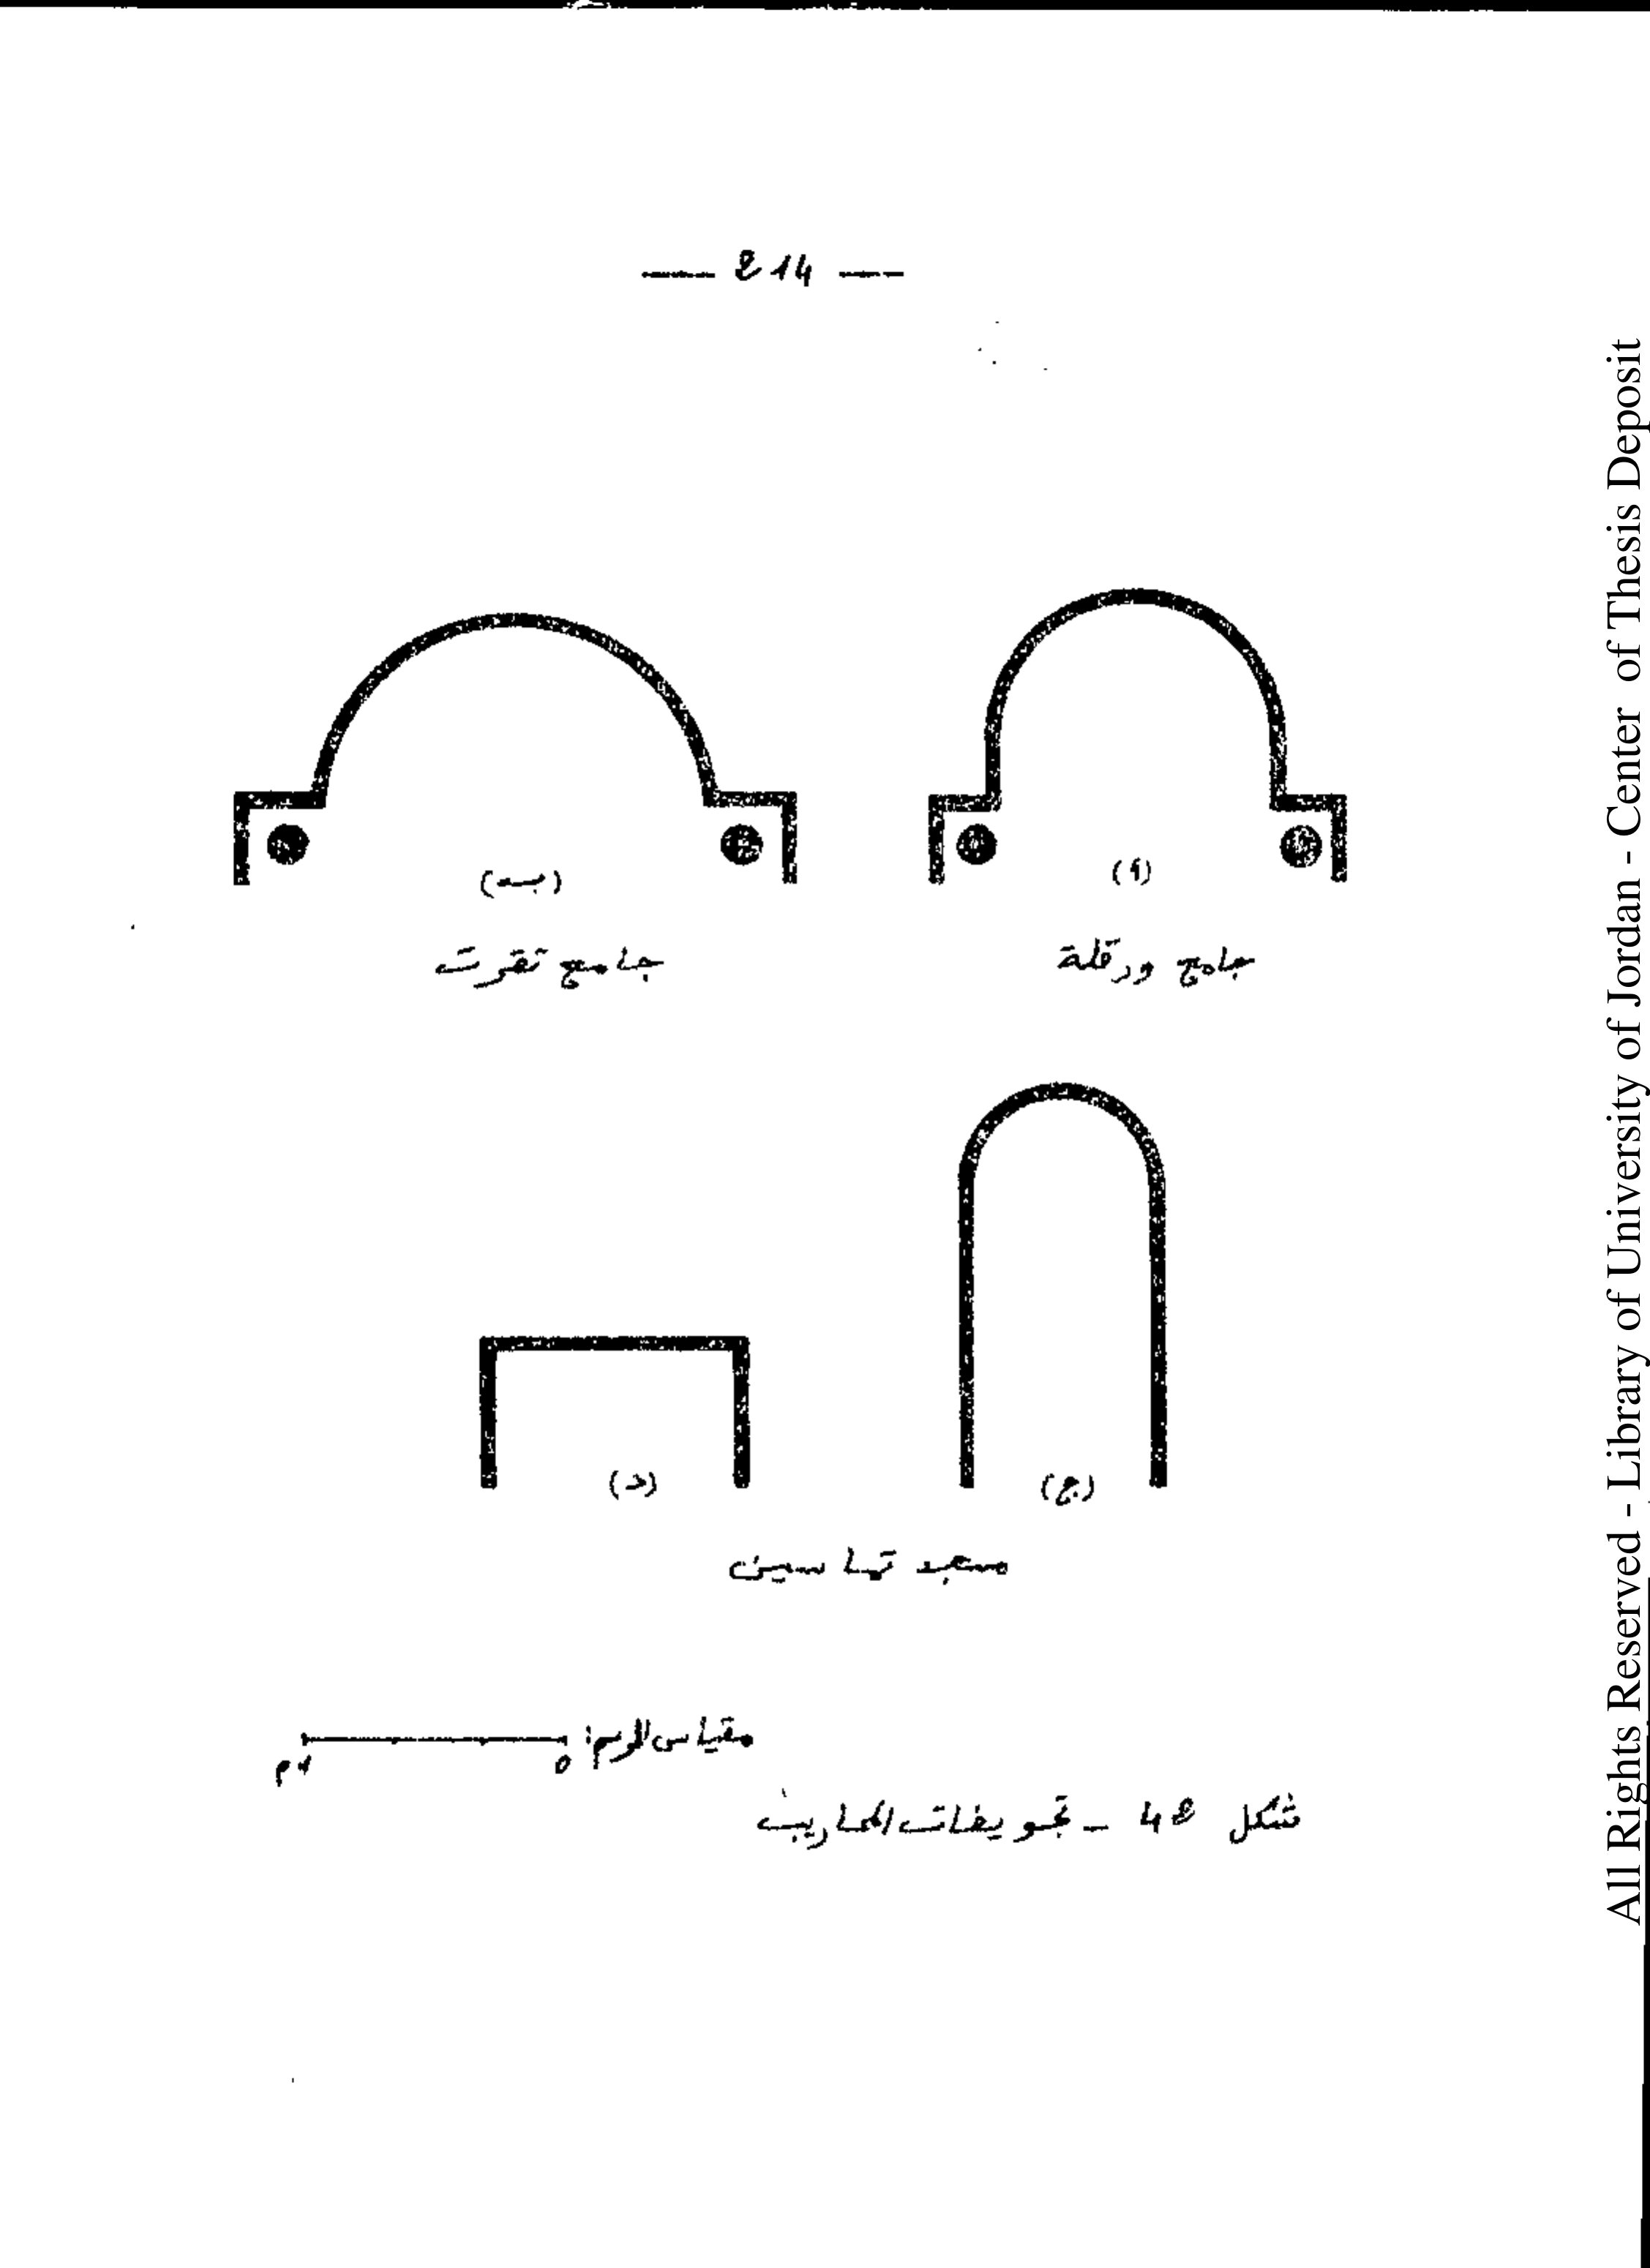 — 214 —
(أ)
(ب)
جامع ورقلة
جامع تقرت
(ج)
(د)
مسجد تماسين
مقياس الرسم:
0
1م
شكل 48 - تجويفات المحاريب
All Rights Reserved - Library of University of Jordan - Center of Thesis Deposit